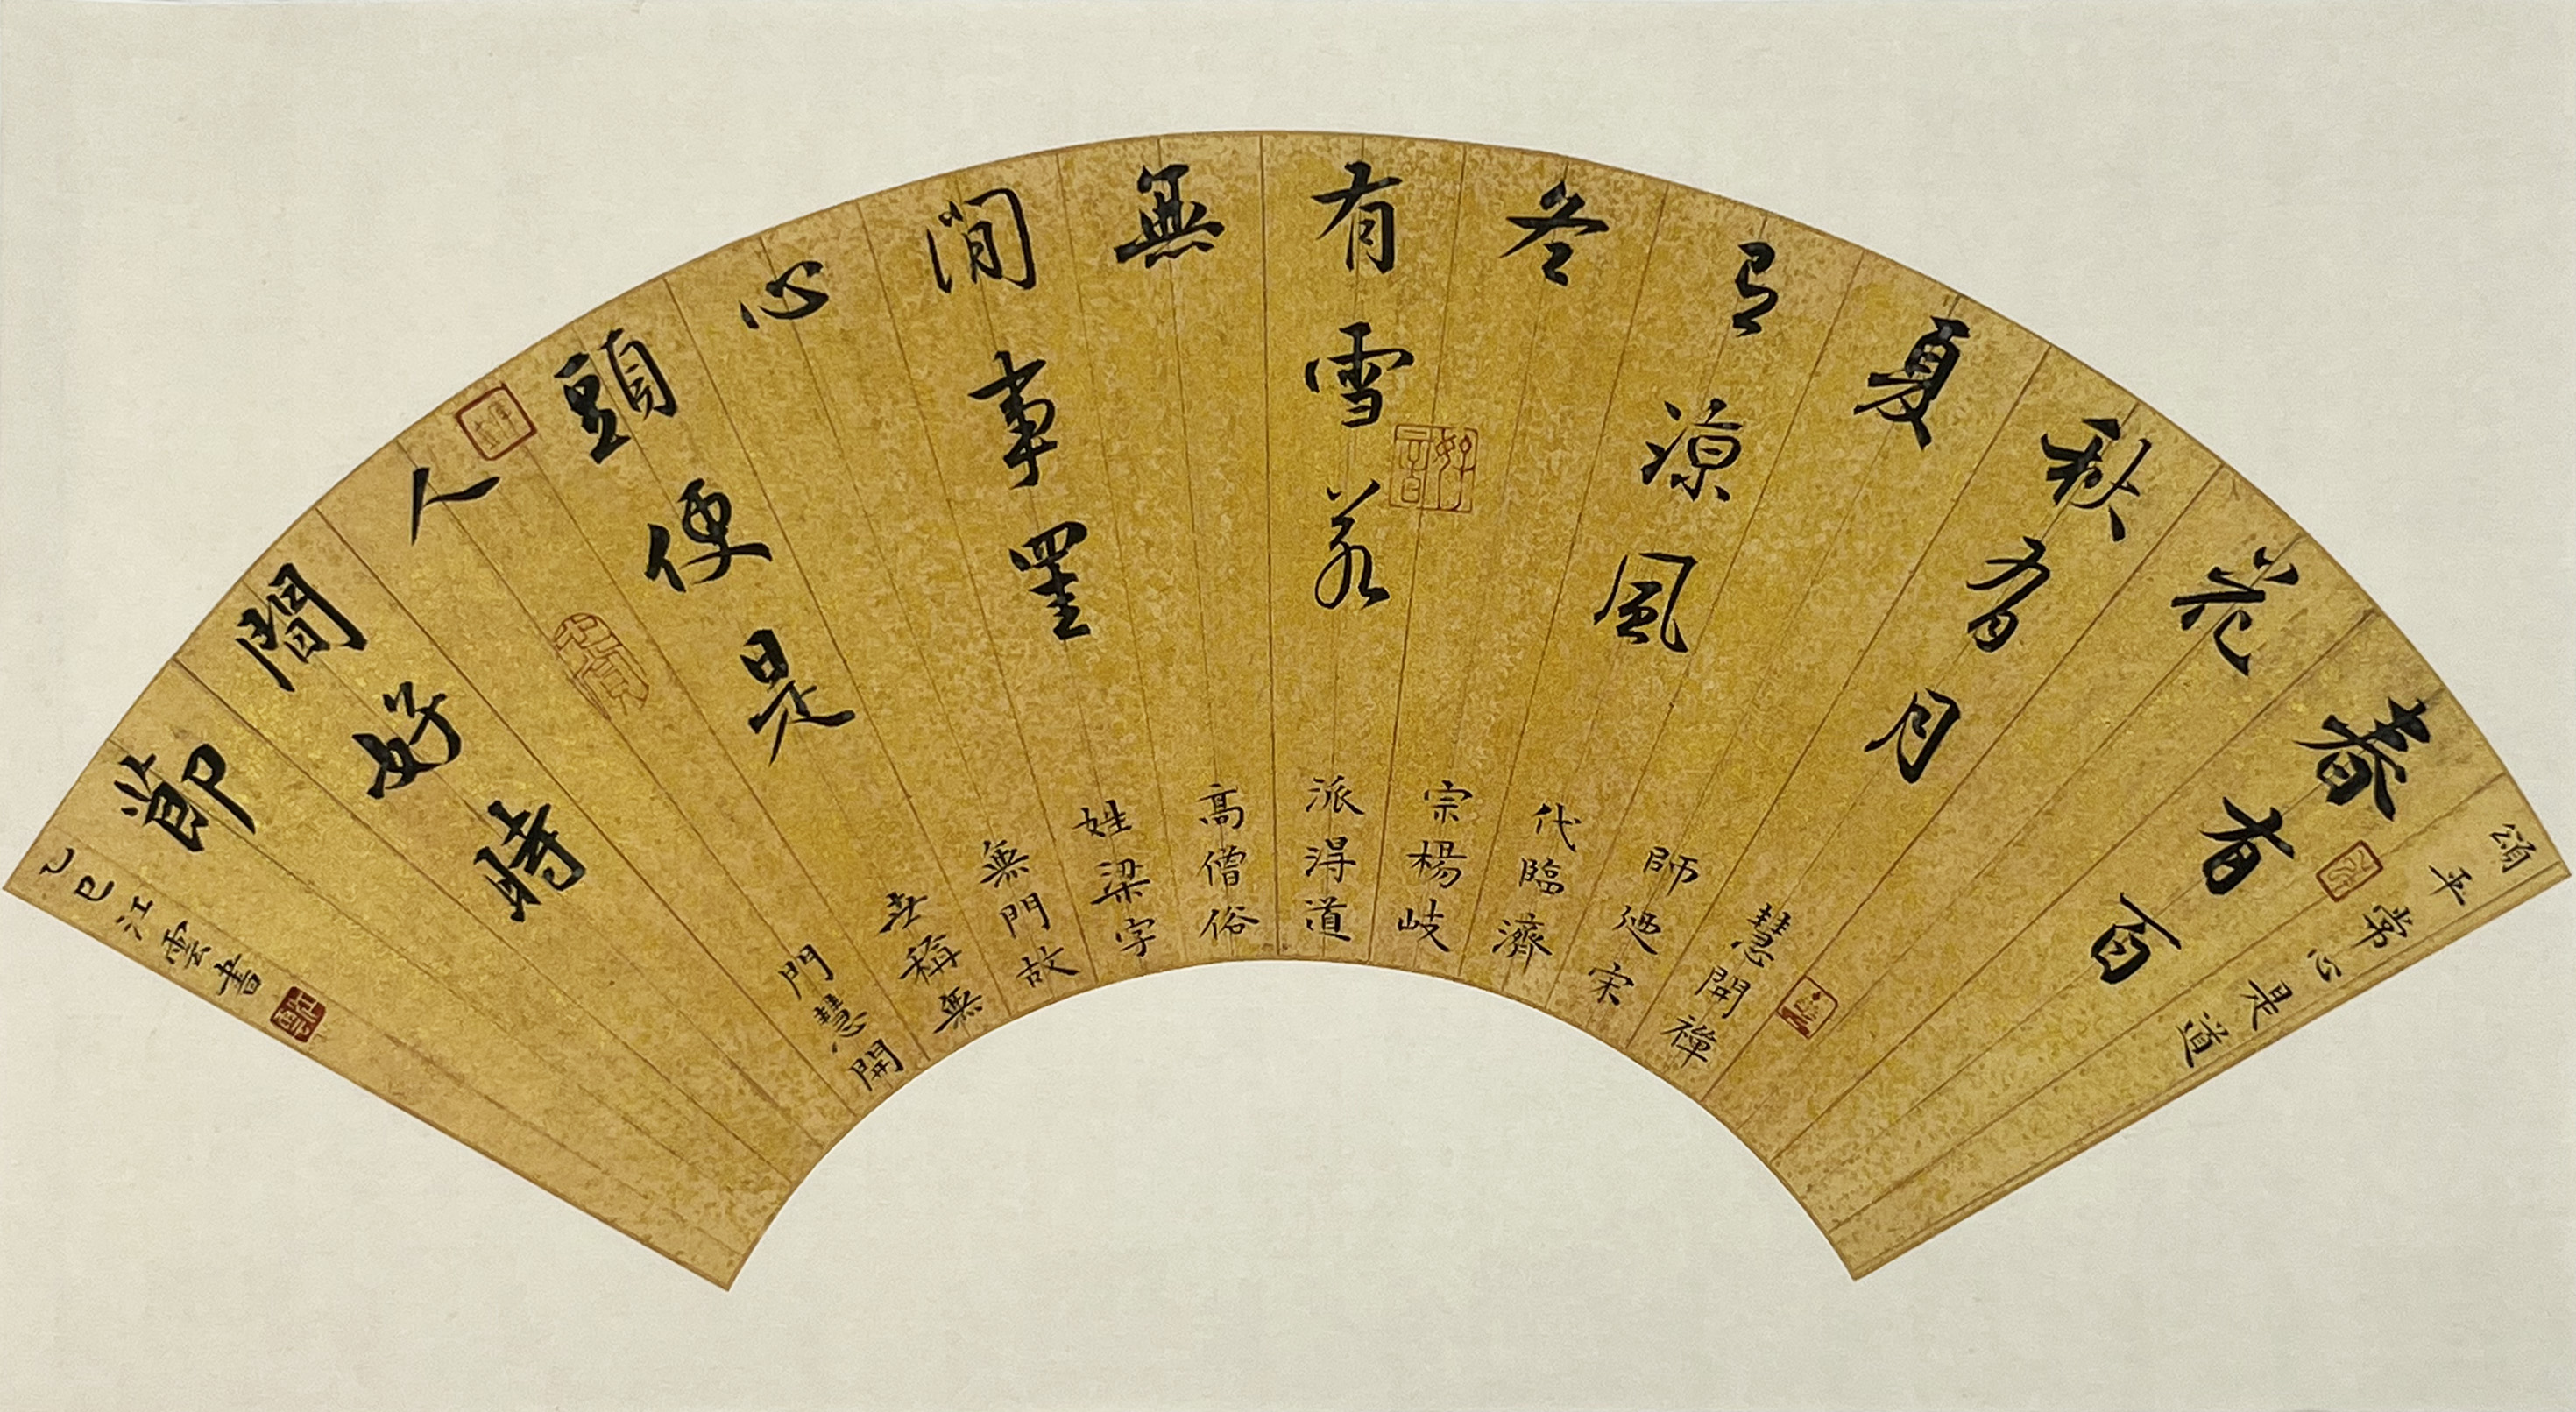 頌平常心是道
春有百
花
秋有月
夏
有涼風
冬
有雪若
無
閒事罣
心
頭便是
人
間好時
節
慧開禪
師廼宋
代臨濟
宗楊岐
派得道
高僧俗
姓梁字
無門故
世稱無
門慧開
乙巳江雲書